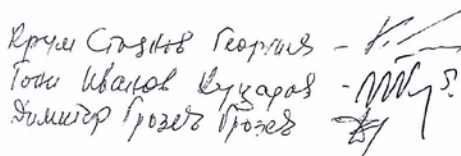 Крум Стоянов Георгиев -
Тони Иванов Куцаров -
Димитър Грозев Грозев